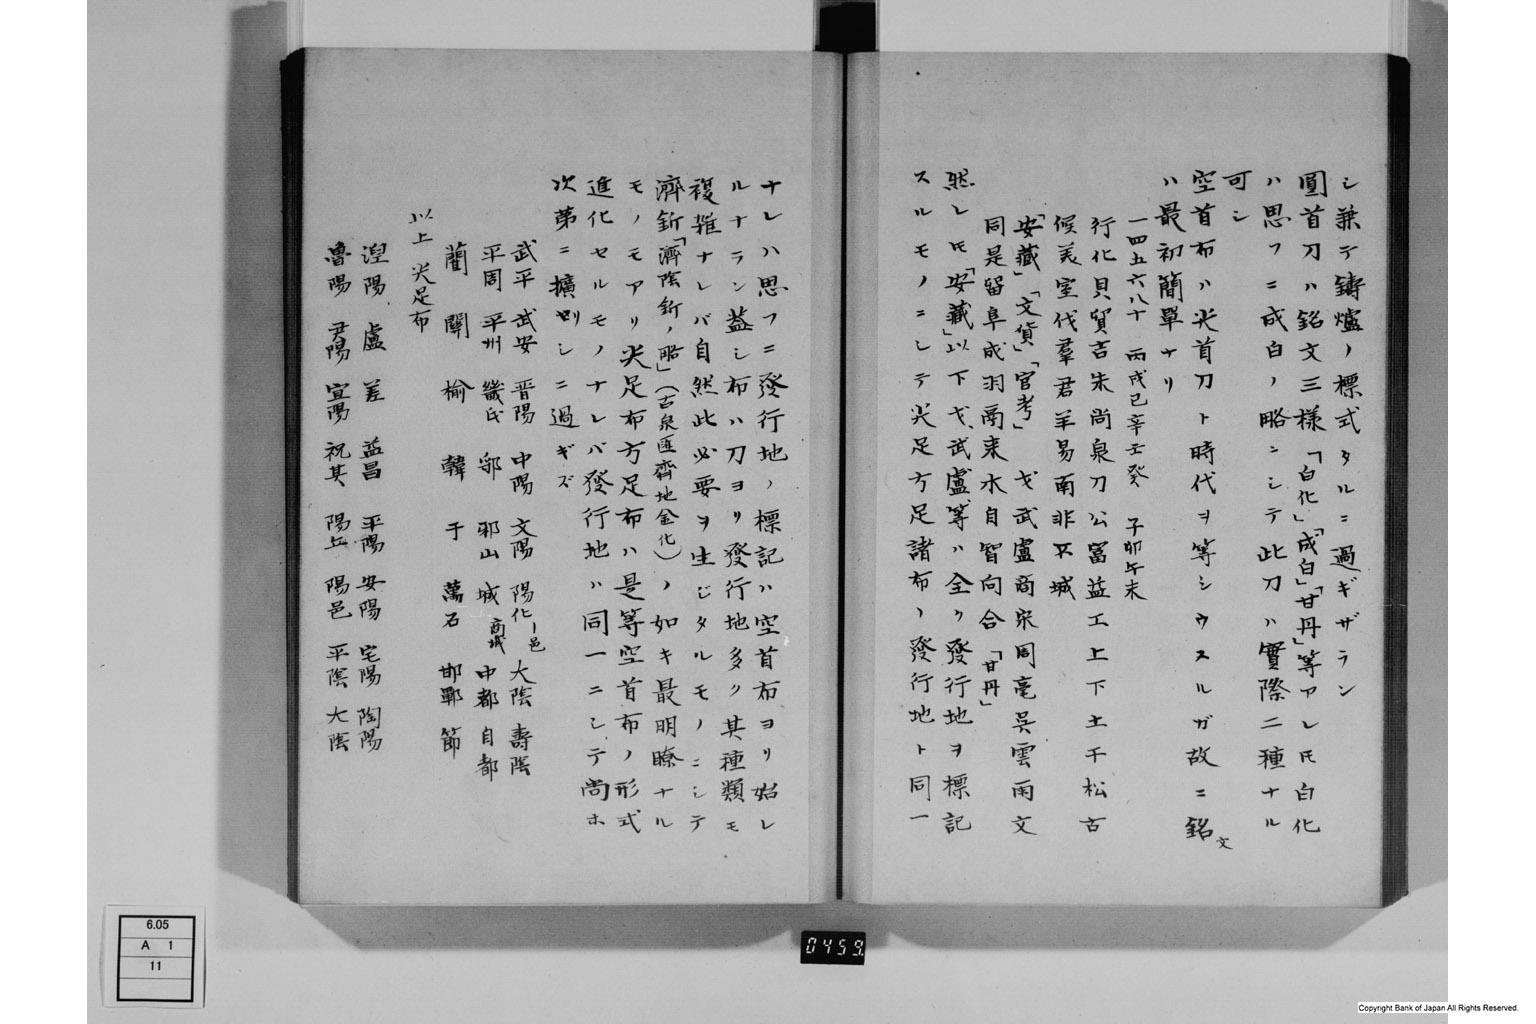 シ兼テ鋳爐ノ標式タルニ過ギザラン
圓首刀ハ銘文三様「白化」「成白」「甘丹」等アレ𪜈白化
ハ思フニ成白ノ略ニシテ此刀ハ實際二種ナル
可シ
空首布ハ尖首刀ト時代ヲ等シウスルガ故ニ銘文
ハ最初簡單ナリ
一四五六八十 丙戌己辛壬癸 子卯午未
行化貝貿吉朱尚泉刀公富益工上下土千松古
候美室代羣君羊易南非不城
「安藏」「文貨」「官考」 戈武盧商宋同毫吳雲雨文
同是留阜成羽鬲耒水自智向合「甘丹」
然レ𪜈「安藏」以下戈、武、盧、等ハ全ク發行地ヲ標記
スルモノニシテ尖足方足諸布ノ發行地ト同一
ナレハ思フニ發行地ノ標記ハ空首布ヨリ始レ
ルナラン蓋シ布ハ刀ヨリ發行地多ク其種類モ
複雑ナレバ自然此必要ヲ生ジタルモノニシテ
濟釿「濟陰釿ノ略」(古泉匯齊地金化)ノ如キ最明瞭ナル
モノモアリ尖足布方足布ハ是等空首布ノ形式
進化セルモノナレバ發行地ハ同一ニシテ尚ホ
次第ニ擴則シニ過ギズ
武平 武安 晋陽 中陽 文陽 陽化ー邑 大陰 壽陰
平周 平州 畿氏 邬 邪山 城 商城 中都 自都
藺 關 榆 韓 于 萬石 邯鄲 節
以上尖足布
涅陽 盧 差 益昌 平陽 安陽 宅陽 陶陽
魯陽 尹陽 宜陽 祝其 陽丘 陽邑 平陰 大陰
6.05
A 1
11
0459
Copyright Bank of Japan All Rights Reserved.